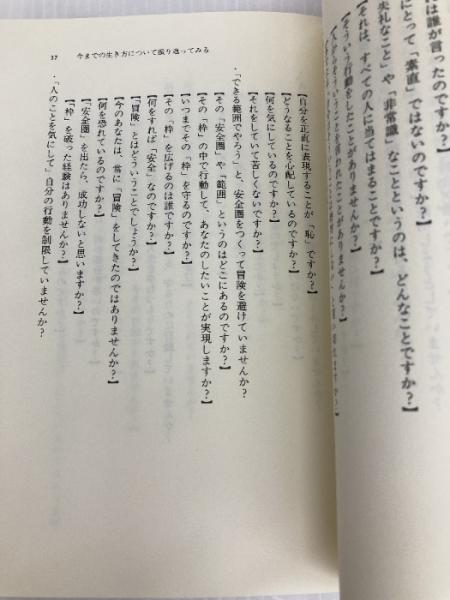 は誰が言ったのですか?】
にとって「素直」ではないのですか?】
失礼なこと」や「非常識」なことというのは、どんなことですか?】
【それは、すべての人に当てはまることですか?】
【そういう行動をしたことがありますか?】
37 今までの生き方について振り返ってみる
【自分を正直に表現することが「恥」ですか?】
【どうなることを心配しているのですか?】
【何を気にしているのですか?】
【それをしていて苦しくないですか?】
・「できる範囲でやろう」と、安全圏をつくって冒険を避けていませんか?
【その「安全圏」や「範囲」というのはどこにあるのですか?】
【その「枠」の中で行動して、あなたのしたいことが実現しますか?】
【いつまでその「枠」を守るのですか?】
【その「枠」を広げるのは誰ですか?】
【何をすれば「安全」なのですか?】
【「冒険」とはどういうことでしょうか?】
【今のあなたは、常に「冒険」をしてきたのではありませんか?】
【何を恐れているのですか?】
【「安全圏」を出たら、成功しないと思いますか?】
【「枠」を破った経験はありませんか?】
・「人のことを気にして」自分の行動を制限していませんか?